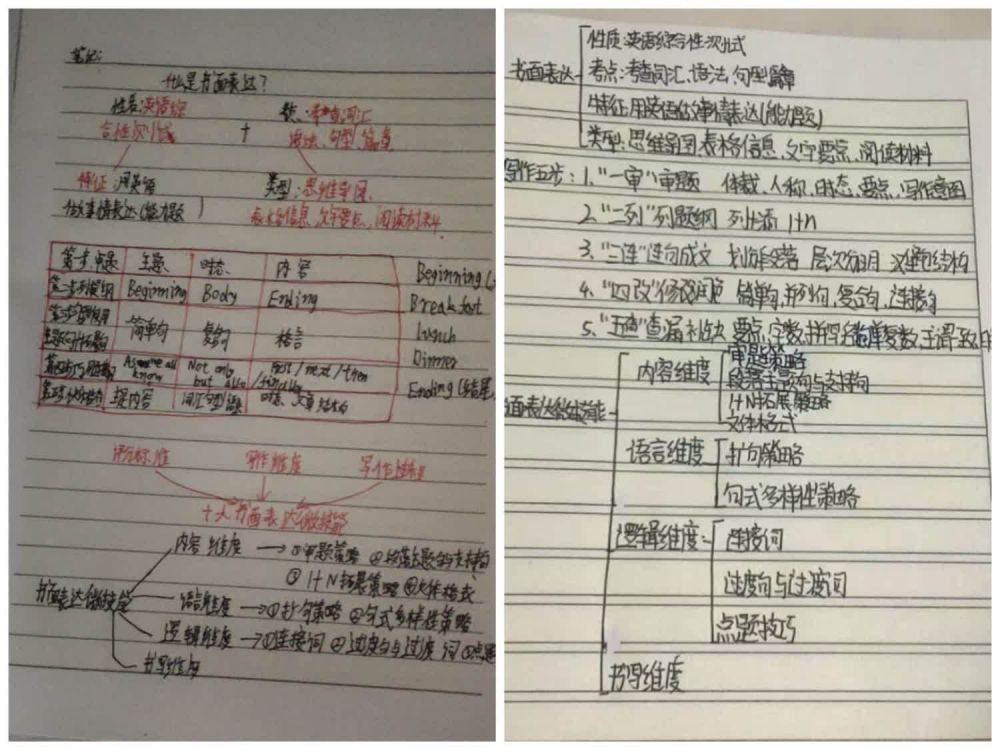 笔记:
什么是书面表达?
性质:英语综
合性测试
+
考点:考查词汇
语法、句型、篇章
特征:用英语
做事情表达(能力题)
类型:思维导图、
表格信息、文字要点、阅读材料
第一步审题 主题 时态 内容
第二步列提纲 Beginning Body Ending
简单句 复合句 格言
As we all know Not only but also first/next/then/finally
接内容 词汇句型 时态、文章结构
Beginning
Breakfast
Lunch
Dinner
Ending(结尾
评分标准 写作维度 写作过程
十大书面表达微技能
书面表达微技能
内容维度 → ①审题策略 ②段落主题句与支撑句
③ 1+N拓展策略 ④文体格式
语言维度 → ①扩句策略 ②句式多样性策略
逻辑维度 → ①连接词 ②过度句与过度词 ③点题
书写维度
书面表达
性质:英语综合性测试
考点:考查词汇、语法、句型、篇章
特征:用英语做事情表达(能力题)
类型:思维导图、表格信息、文字要点、阅读材料
写作五步:1."一审"审题 体裁、人称、时态、要点、写作意图
2."二列"列题纲 列要点 1+n
3."三连"连句成文 划分段落 层次分明 注重结构
4."四改"修改润色 简单句,并列句,复合句,连接句
5."五查"查漏补缺 要点,字数,拼写,名词单复数,主谓一致
书面表达微技能
内容维度
审题策略
段落主题句与支撑句
1+N拓展策略
文体格式
语言维度
扩句策略
句式多样性策略
逻辑维度
连接词
过度句与过渡词
点题技巧
书写维度